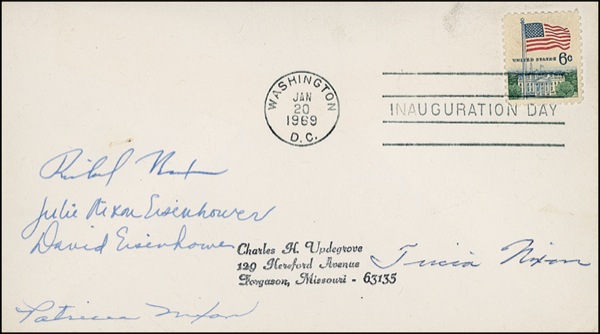 UNITED STATES 6c
WASHINGTON
JAN
20
1969
D.C.
INAUGURATION DAY
Richard Nixon
Julie Nixon Eisenhower
David Eisenhower
Charles H. Updegrove
129 Hereford Avenue
Forgason, Missouri - 63135
Tricia Nixon
Patricia Nixon